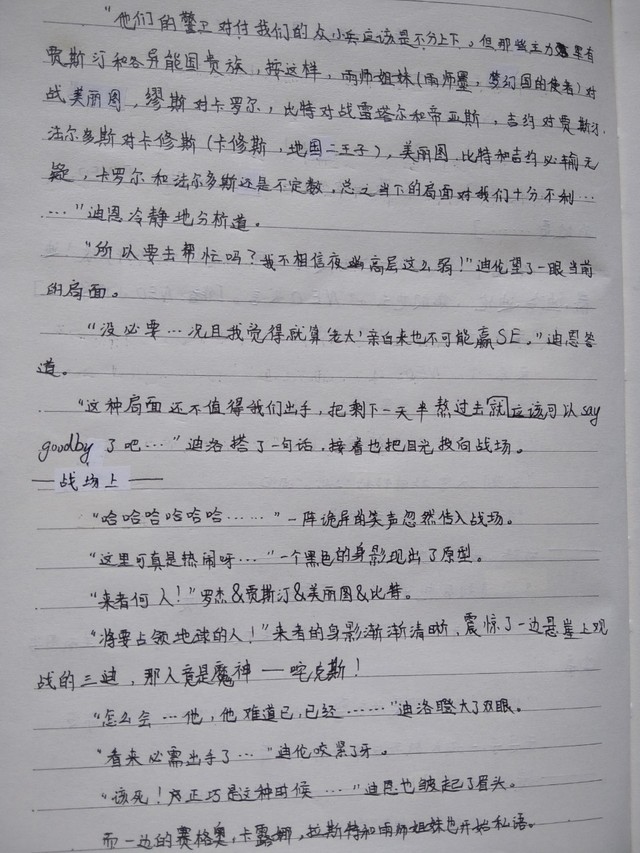 “他们的警卫对付我们的众小兵应该是不分上下，但那些主力里有
贾斯汀和各异能国贵族，按这样，雨师姐妹(雨师墨，梦幻国的使者)对
战美丽图，缪斯对卡罗尔，比特对战雷塔尔和帝亚斯，吉约对贾斯汀，
法尔多斯对卡修斯(卡修斯，地国二王子)，美丽图.比特和吉约必输无
疑，卡罗尔和法尔多斯还是不定数，总之当下的局面对我们十分不利…
…”迪恩冷静地分析道。
“所以要去帮忙吗？我不相信夜幽高层这么弱！”迪伦望了一眼当前
的局面。
“没必要…况且我觉得就算‘老大’亲自来也不可能赢SE。”迪恩答
道。
“这种局面还不值得我们出手，把剩下一天半熬过去就应该可以say
goodby了吧…”迪洛搭了一句话，接着也把目光投向战场。
—战场上——
“哈哈哈哈哈哈……”一阵诡异的笑声忽然传入战场。
“这里可真是热闹呀…”一个黑色的身影现出了原型。
“来者何人！”罗杰&贾斯汀&美丽图&比特。
“将要占领地球的人！”来者的身影渐渐清晰，震惊了一边悬崖上观
战的三迪，那人竟是魔神——咤克斯！
“怎么会…他，他难道已，已经……”迪洛瞪大了双眼。
“看来必需出手了…”迪伦咬紧了牙。
“该死！为正巧是这种时候…”迪恩也皱起了眉头。
而一边的赛格奥，卡露娜，拉斯特和雨师姐妹也开始私语。